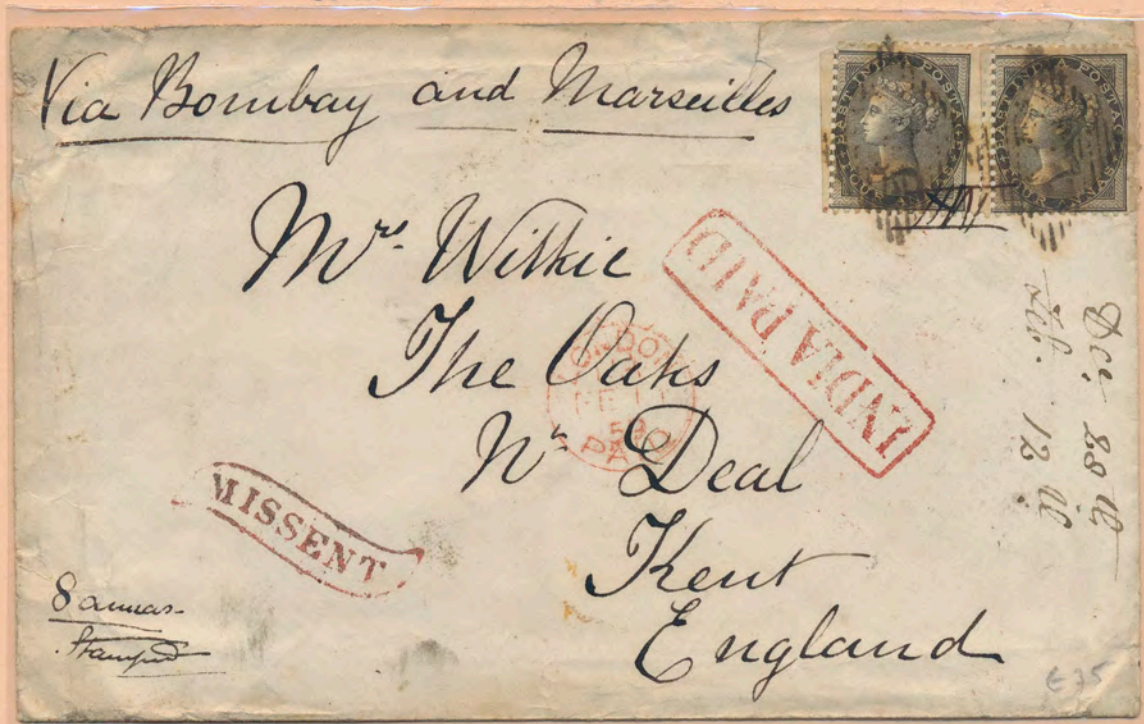 Via Bombay and Marseilles
EAST INDIA POSTAGE
FOUR ANNAS
EAST INDIA POSTAGE
FOUR ANNAS
Mrs. Wilkie
The Oaks
Nr Deal
Kent
England
INDIA PAID
LONDON
FE 11
59
PAID
MISSENT
8 annas
Stamped
Dec. 28
Feb. 12
£35